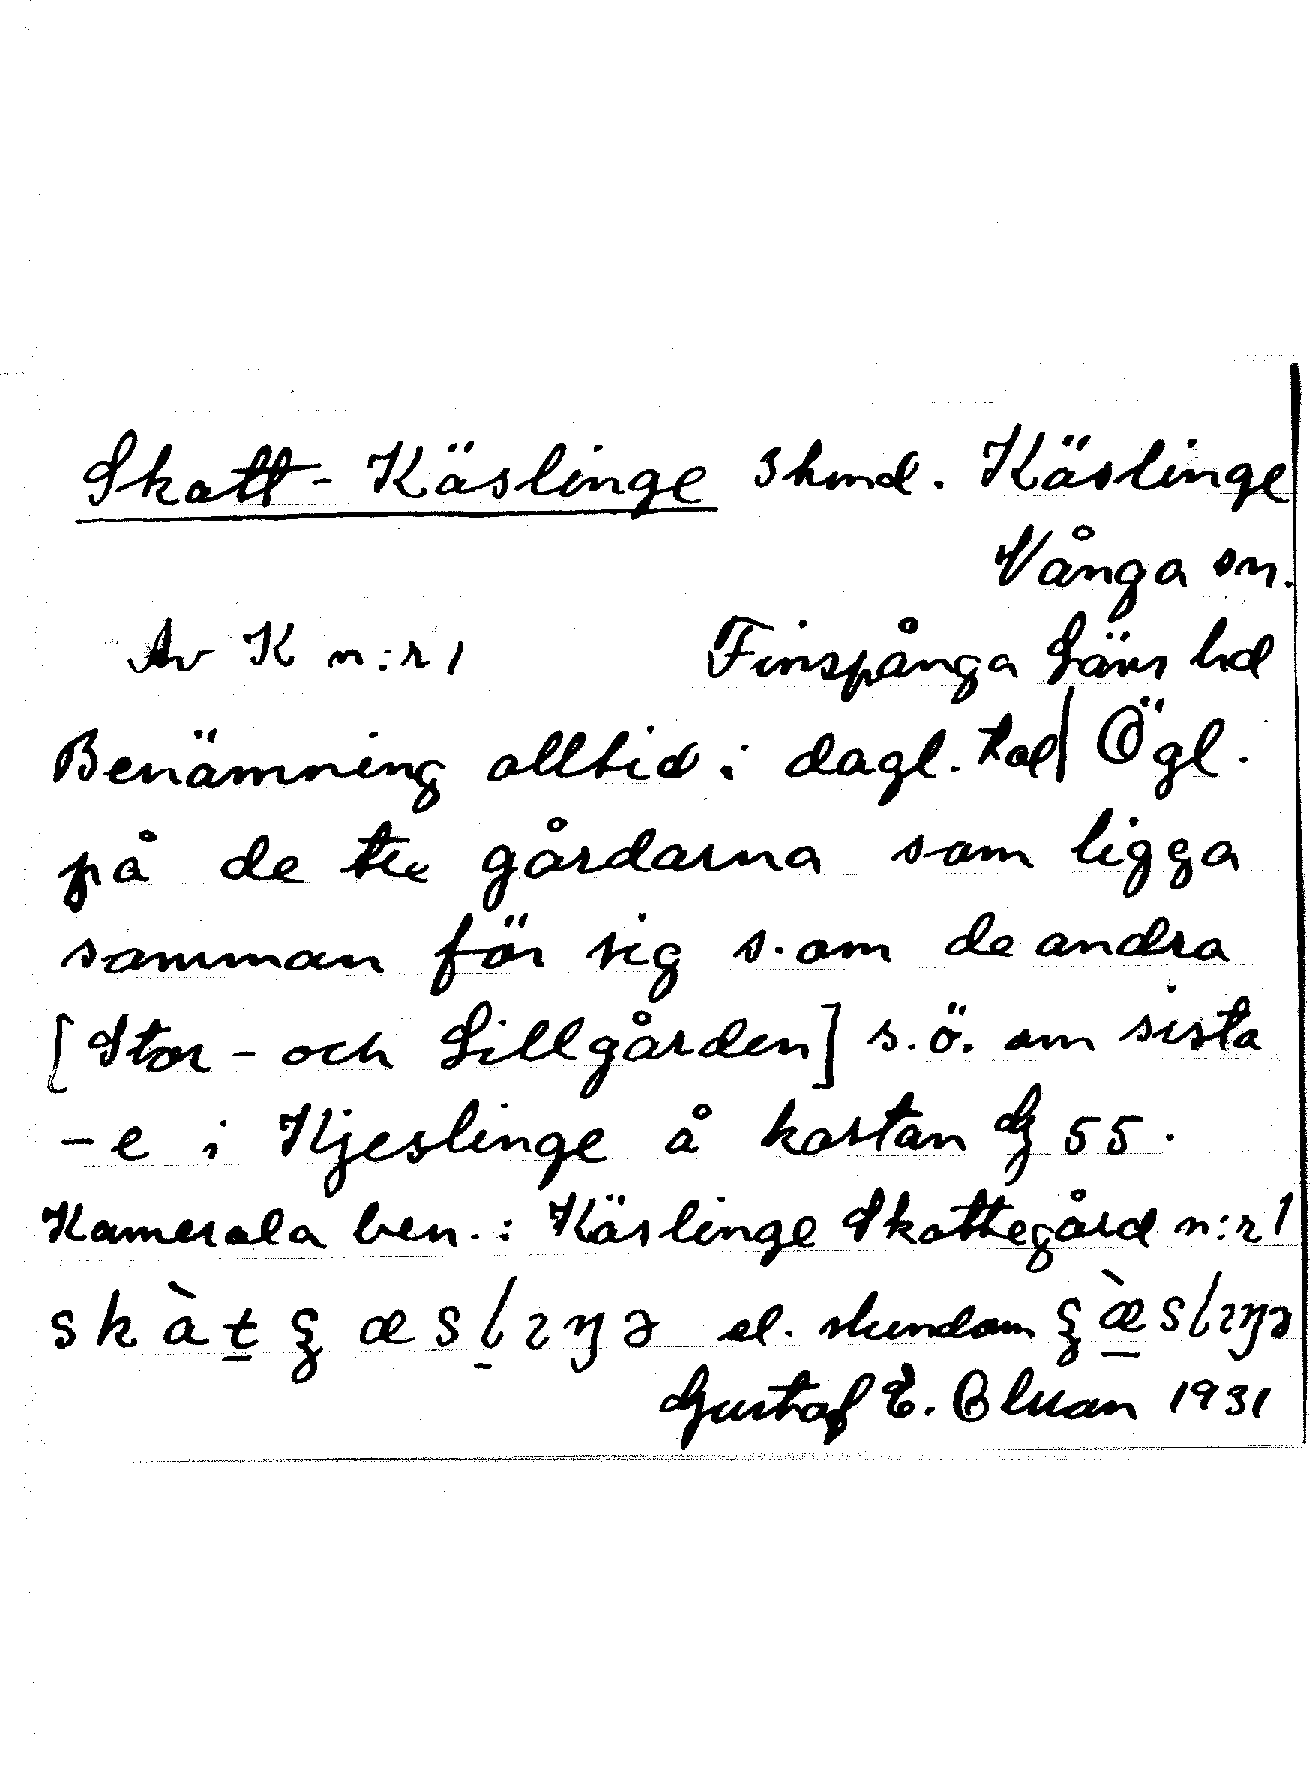 Skatt-Käslinge skind. Käslinge
Vånga sn.
Av K n:r 1 Finspånga Läns hd
Benämning alltid i dagl. tal Ögl.
på de tre gårdarna som ligga
samman för sig s. om de andra
[Stor- och Lillgården] s.ö. om sista
-e i Kjeslinge å kartan G 55.
Kamerala ben.: Käslinge Skattegård n:r 1
el. stundom
Gustaf E. 1931